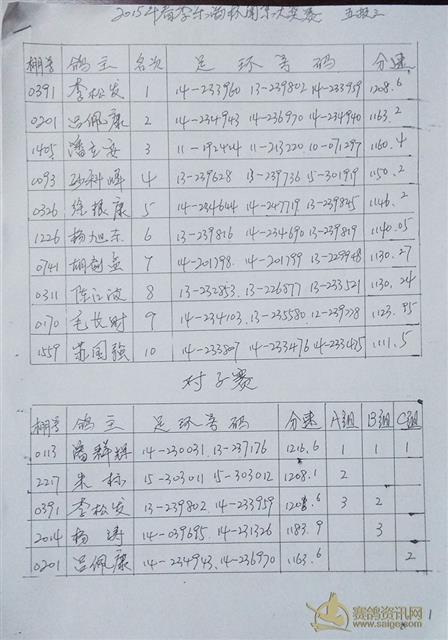 2015年春季 大奖赛 五扳三
棚号 鸽主 名次 足环号码 分速
0391 李松发 1 14-233960 13-239802 14-233959 1208.6
0201 吕佩康 2 14-234943 14-236970 14-234940 1163.2
1405 潘 3 11-192424 11-213220 10-071297 1160.4
0093 4 13-239628 13-239736 15-301919 1150.2
0326 徐根康 5 14-234644 14-247719 13-239845 1146.2
1226 杨旭东 6 13-239816 14-234690 13-239819 1140.05
0741 胡 7 14-201798 14-201799 13-229948 1130.27
0311 陈江波 8 13-232853 13-226877 13-233521 1130.24
0170 毛长财 9 14-234103 13-235580 12-239278 1123.95
1559 苏国强 10 14-233807 14-233476 14-233475 1111.5
对子赛
棚号 鸽主 足环号码 分速 A组 B组 C组
0113 潘群辉 14-230031 13-237176 1216.6 1 1 1
2217 朱标 15-303011 15-303012 1208.1 2
0391 李松发 13-239802 14-233959 1208.6 3 2
2014 杨涛 14-039695 14-231326 1183.9 3
0201 吕佩康 14-234943 14-236970 1163.6 2
赛鸽资讯网
www.saige.com
1